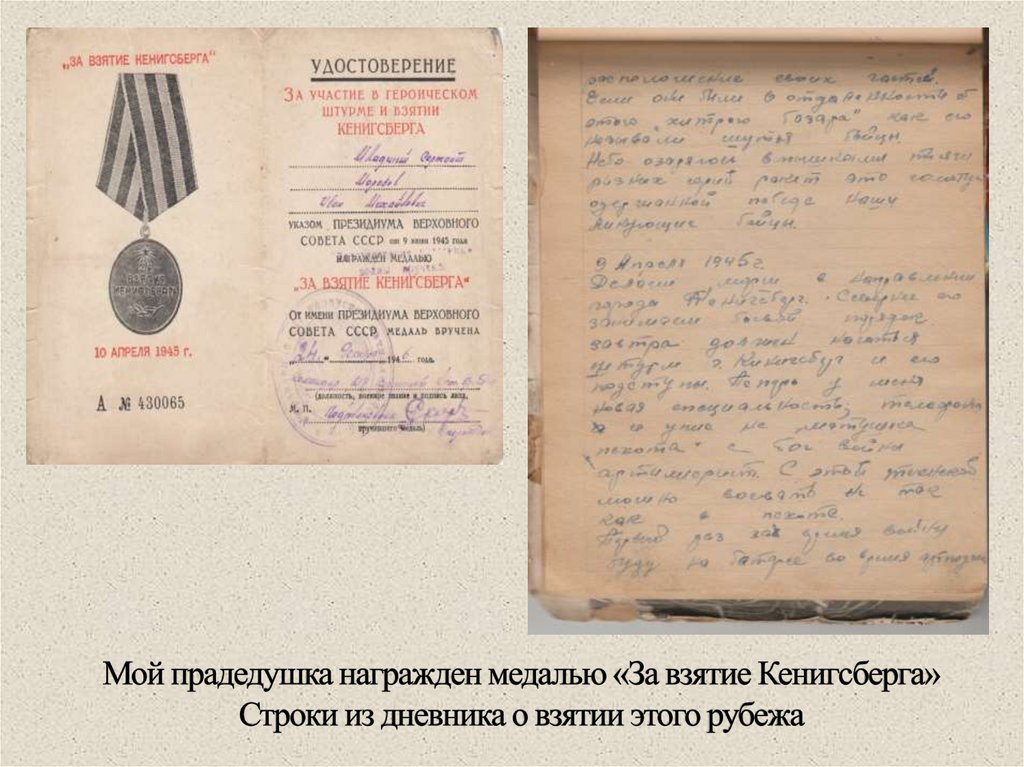 „ЗА ВЗЯТИЕ КЕНИГСБЕРГА“
ВЗЯТИЕ
КЕНИГСБЕРГА
10 АПРЕЛЯ 1945 г.
А № 430065
УДОСТОВЕРЕНИЕ
ЗА УЧАСТИЕ В ГЕРОИЧЕСКОМ
ШТУРМЕ И ВЗЯТИИ
КЕНИГСБЕРГА
Младший Сержант
Иван Михайлович
УКАЗОМ ПРЕЗИДИУМА ВЕРХОВНОГО
СОВЕТА СССР от 9 июня 1945 года
НАГРАЖДЕН МЕДАЛЬЮ
„ЗА ВЗЯТИЕ КЕНИГСБЕРГА“
От имени ПРЕЗИДИУМА ВЕРХОВНОГО
СОВЕТА СССР МЕДАЛЬ ВРУЧЕНА
194 года.
(должность, воинское звание и подпись лица,
М. П.
вручившего медаль)
расположение своих частей.
Если они были в отдаленности от
этого хитрого базара" как его
называли шутя бойцы.
Небо озарялось тысячи
разных ракет это
победе нашу
ликующие бойцы.
9 Апреля 1945 г.
в направлении
города
боевой порядок
завтра должен
штурм г. и его
подступы. Теперь у меня
новая специальность;
и я уже не матушка
пехота" а бог войны
С этой
можно воевать не так
как в пехоте.
Первый раз за время войны
буду на батарее во время
Мой прадедушка награжден медалью «За взятие Кенигсберга»
Строки из дневника о взятии этого рубежа